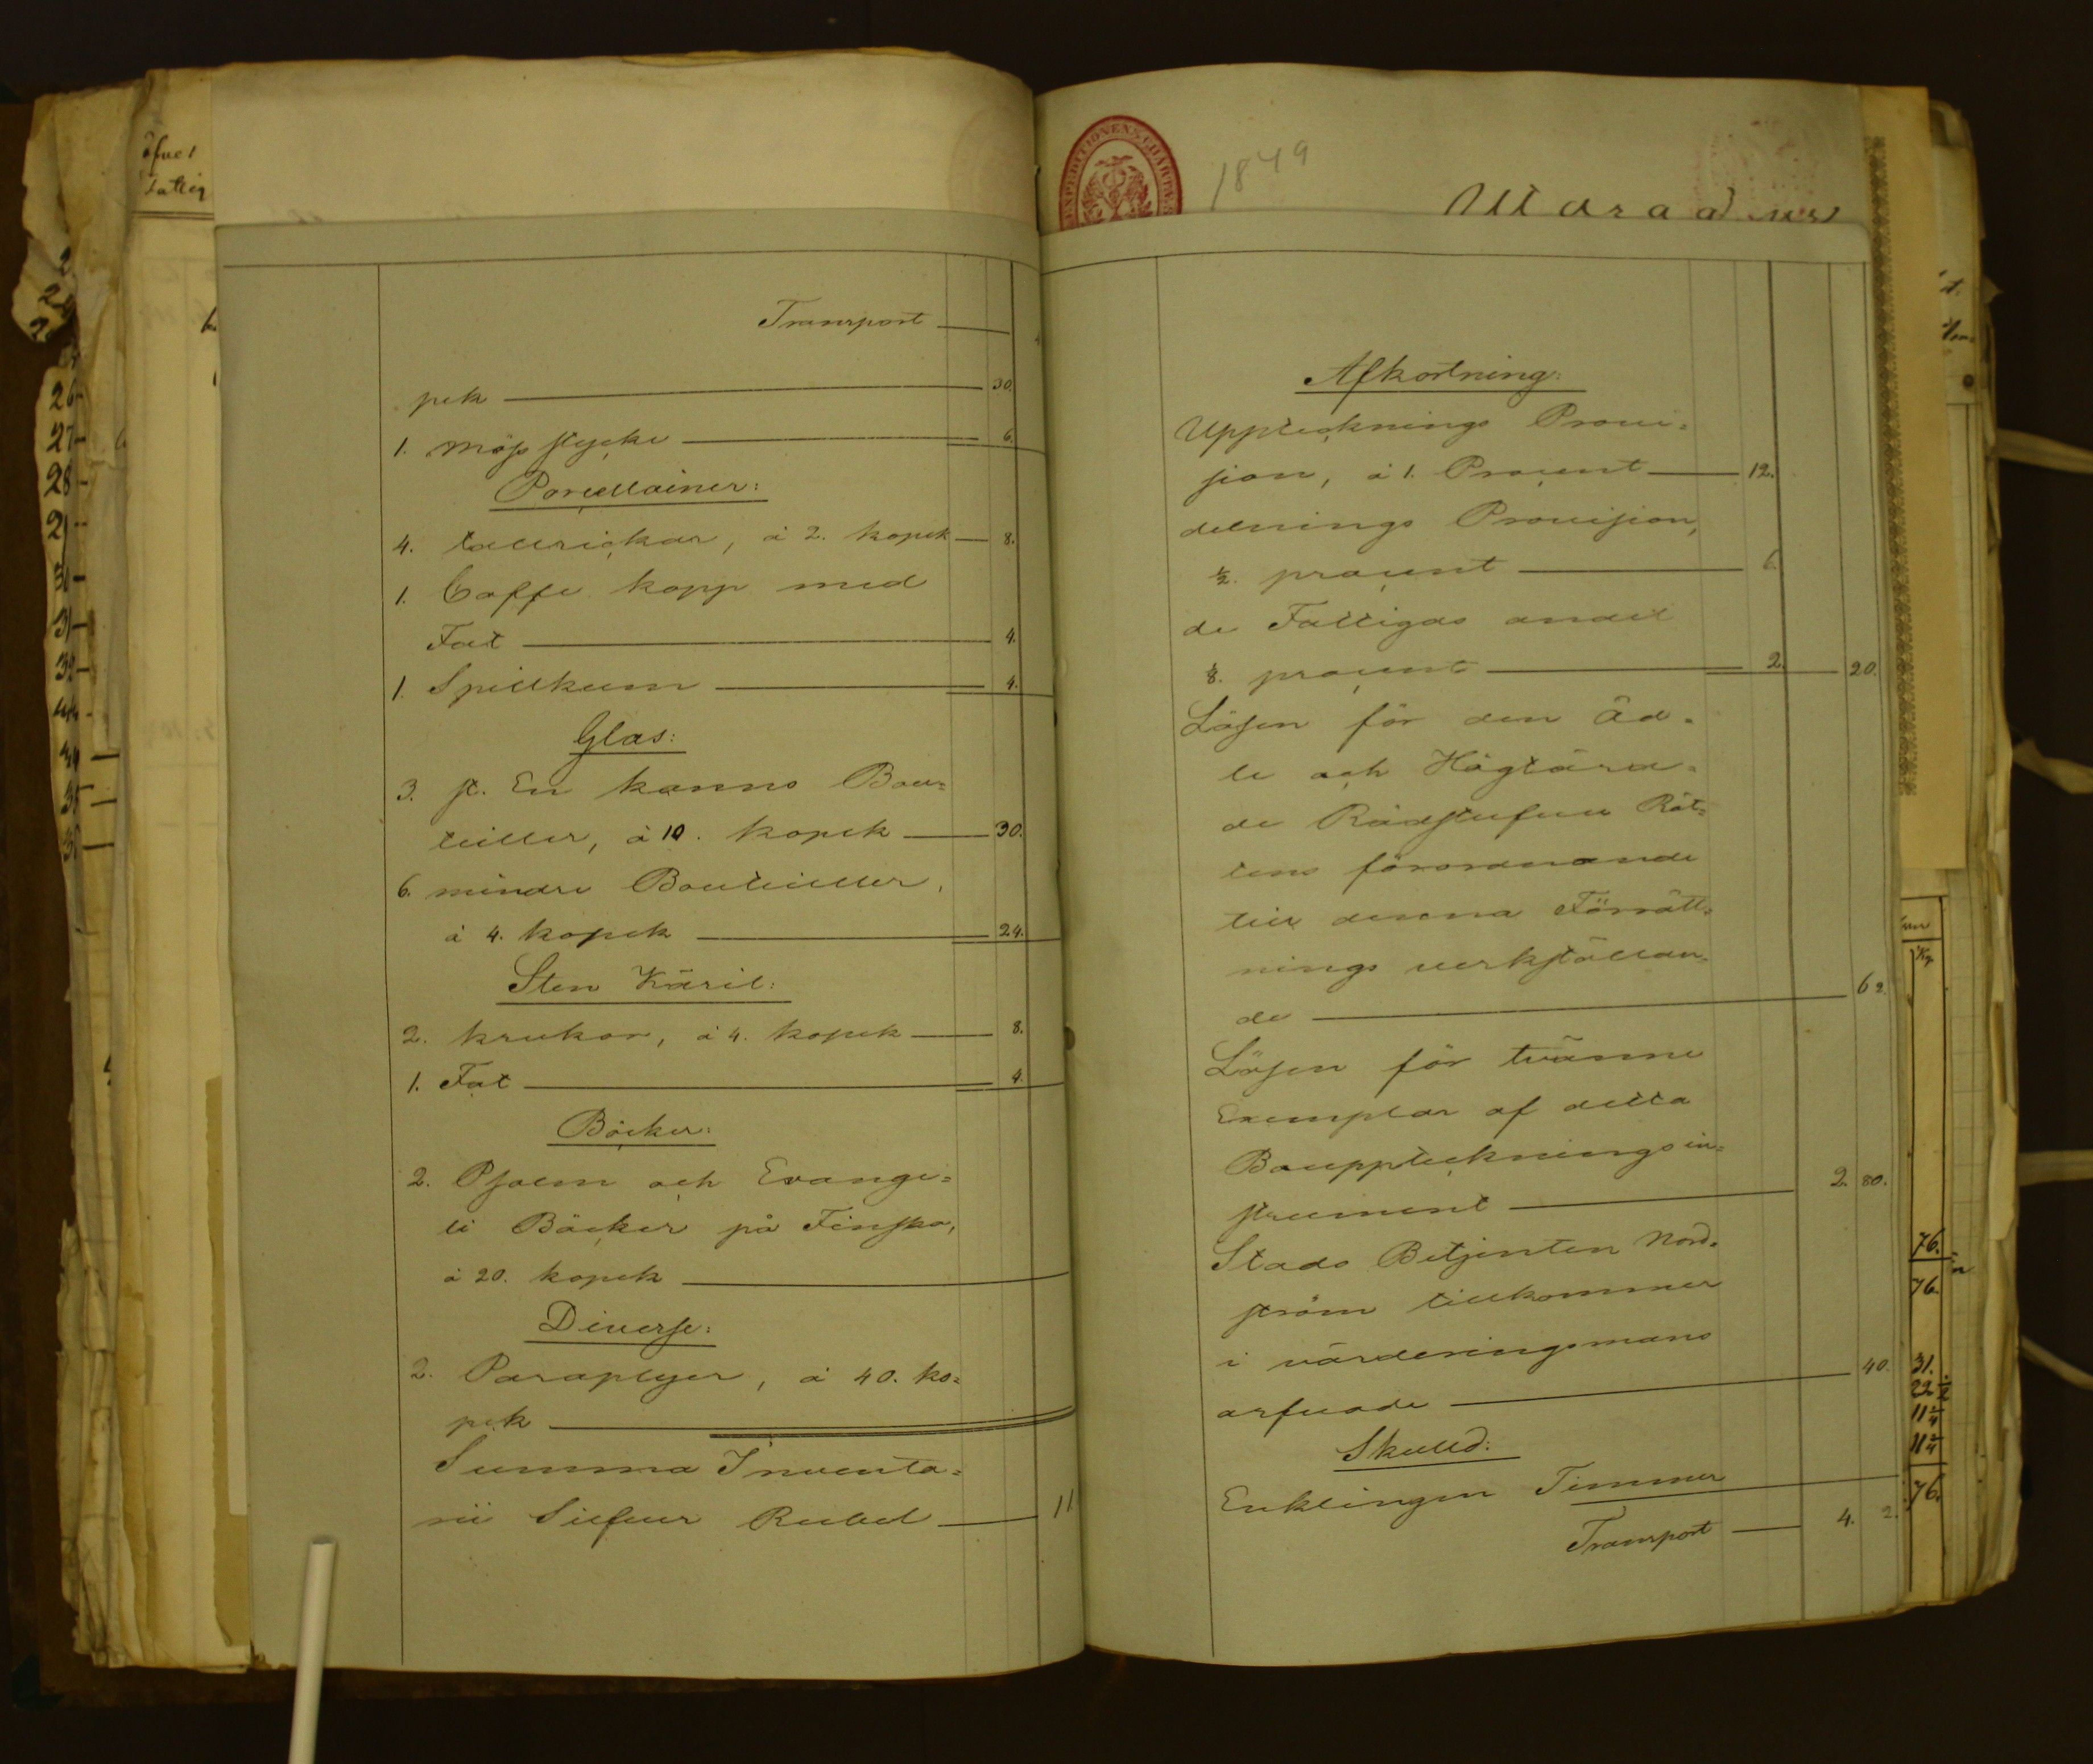 Transport
pek 30.
1. Möss stycke 6.
Porcellainer:
4. tallrickar, à 2. kopek 8.
1. Caffe kopp med
Fat 4.
1. Spillkum 4.
Glas:
3. st. En kanns Bou=
teiller, à 10. kopek 30.
6. mindre Bouteiller,
à 4. kopek 24.
Sten Käril:
2. krukor, à 4. kopek 8.
1. Fat 4.
Böcker:
2. Psalm och Evange=
li Böcker på Finska,
à 20. kopek
Diverse:
2. Paraplyer, à 40. ko=
pek
Summa Inventa=
rii Silfver Rubel 11
1849
Afkortning:
Upptecknings Provi=
sion, à 1. Procent 12.
delnings Provision,
½. procent 6.
de Fattigas andel
⅛. procent 2. 20.
Lösen för den Äd=
le och Högtärad=
de Rådstufvu Rät=
tens förordnande
till denna Förrätt=
nings verkställan=
de 62.
Lösen för tvänne
Exemplar af detta
Bouppteckningsin=
strument 2. 80.
Stads Betjenten Nord=
ström tillkommer
i värderingsmans
arfvode 40.
Skulld:
Enklingen Timmer
Transport 4. 2.
76.
76.
31.
22 ½
11 ¼
11 ¼
76.